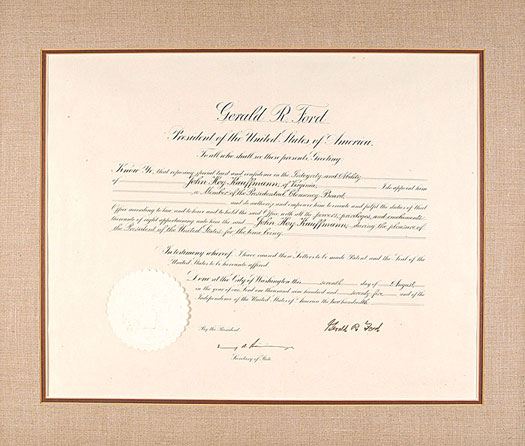 Gerald R. Ford
President of the United States of America.
To all who shall see these presents, Greeting:
Know Ye, that reposing special trust and confidence in the Integrity and Ability
of John Hoy Kauffmann, of Virginia, I do appoint him
a Member of the Presidential Clemency Board,
and do authorize and empower him to execute and fulfil the duties of that
Office according to law, and to have and to hold the said Office, with all the powers, privileges, and emoluments
thereunto of right appertaining unto him the said John Hoy Kauffmann, during the pleasure of
the President of the United States for the time being.
In testimony whereof, I have caused these Letters to be made Patent and the Seal of the
United States to be hereunto affixed.
Done at the City of Washington this seventh day of August
in the year of our Lord one thousand nine hundred and seventy-five and of the
Independence of the United States of America the two hundredth.
Gerald R. Ford
By the President:
Secretary of State.